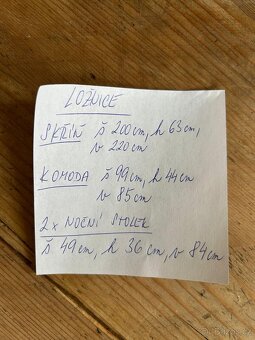 LOŽNICE
SKŘÍŇ š 200cm, h 63cm,
v 220cm
KOMODA š 99cm, h 44cm
v 85cm
2x NOČNÍ STOLEK
š 49cm, h 36cm, v 84cm